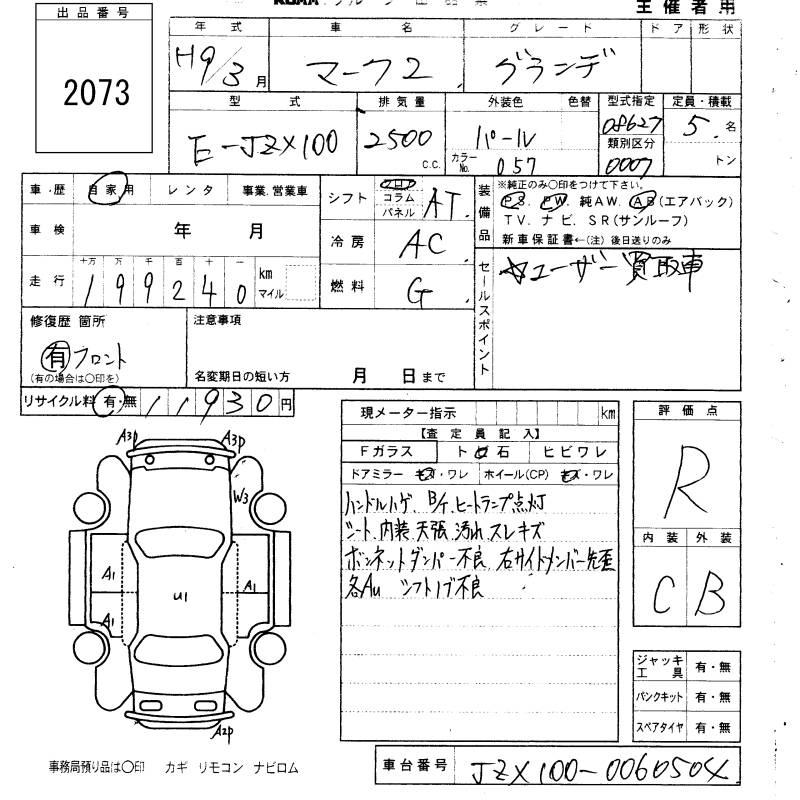 主催者用
出品番号
2073
年式 車名 グレード ドア 形状
H9/3月 マーク2 グランデ
型式 排気量 外装色 色替 型式指定 定員・積載
E-JZX100 2500 C.C. パール 08627 5 名
類別区分
カラーNo. 057 0007 トン
車・歴 自家用 レンタ 事業.営業車
車検 年 月
走行 十万 万 千 百 十 一
199240 km マイル
シフト フロア コラム パネル AT
冷房 AC
燃料 G
装備品
※純正のみ○印をつけて下さい。
PS. PW. 純AW. AB(エアバック)
TV. ナビ. SR(サンルーフ)
新車保証書←(注) 後日送りのみ
セールスポイント
☆ユーザー買取車
修復歴 箇所
有 フロント
(有の場合は○印を)
注意事項
名変期日の短い方 月 日まで
リサイクル料 有・無 11930円
現メーター指示 km
【査定員記入】
Fガラス ト石 ヒビワレ
ドアミラー キズ・ワレ ホイール(CP) キズ・ワレ
ハンドルハゲ、B/ケ、ヒートランプ点灯
シート、内装、天張、汚れ、スレキズ
ボンネットダンパー不良、右サイドメンバー先歪
各AU シフトノブ不良
評価点
R
内装 外装
C B
A3P A3P
W3
A1 A1
U1
A1
A2P
ジャッキ工具 有・無
パンクキット 有・無
スペアタイヤ 有・無
事務局預り品は○印 カギ リモコン ナビロム
車台番号 JZX100-0060504